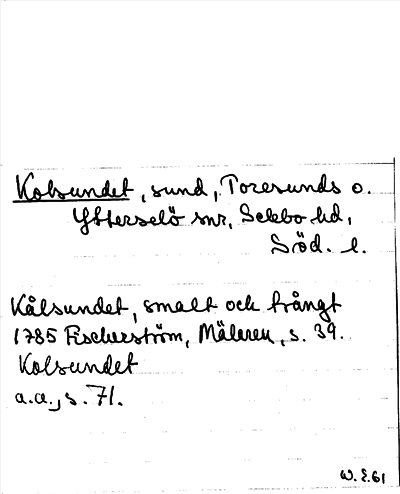 Kolsundet, sund, Toresunds o.
Ytterselö snr, Selebo hd,
Söd. l.
Kålsundet, smalt och trångt
1785 Fischerström, Mälaren, s. 39.
Kolsundet
a.a., s. 71.
W. E. 61